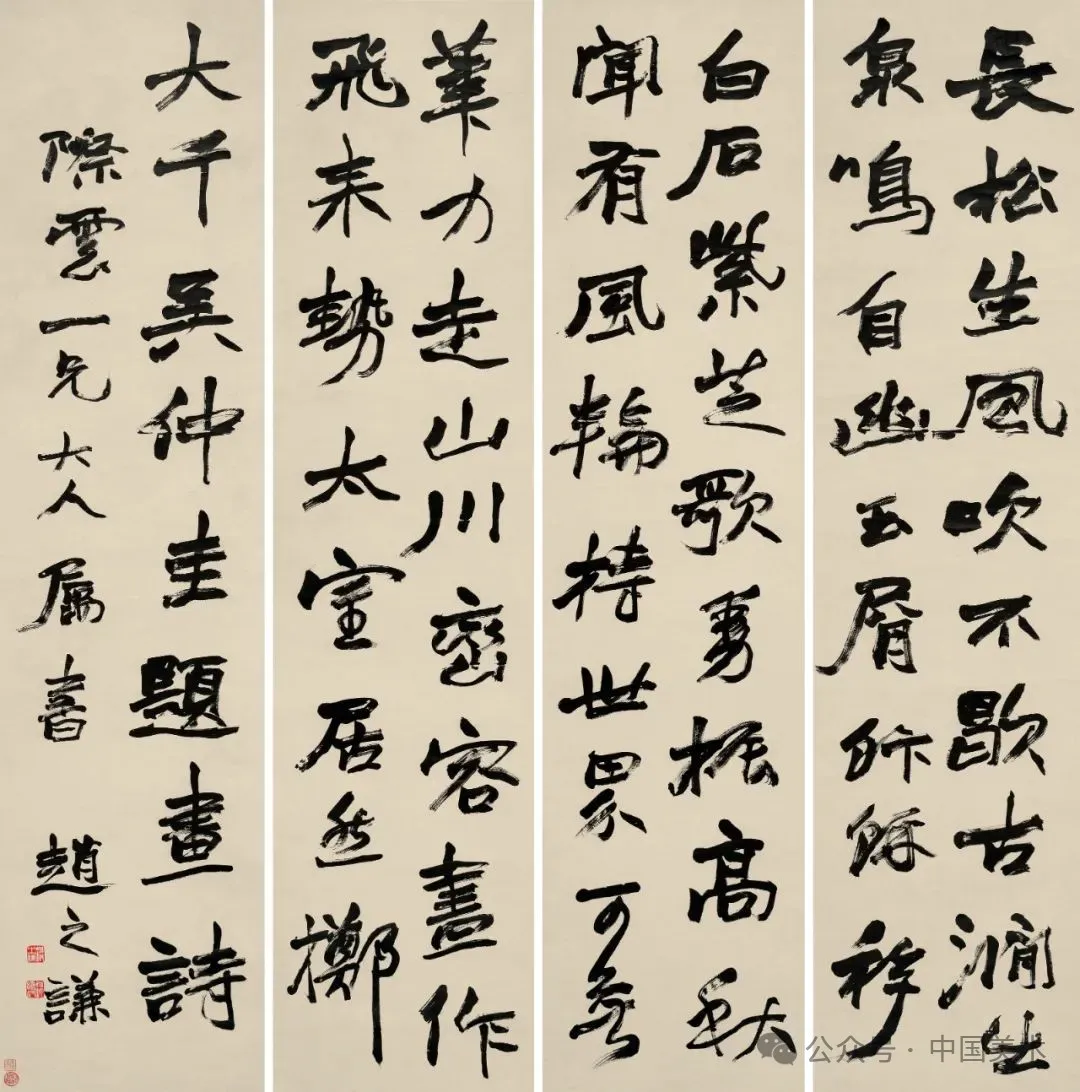 長松生風吹不歇古澗出
泉鳴自幽玉屑
白石紫芝歌振高秋
聞有風輪持世界可無
筆力走山川巒容畫作
飛來勢太室居然擲
大千吳仲圭題畫詩
際雲一兄大人屬書 趙之謙
公众号·中国美术